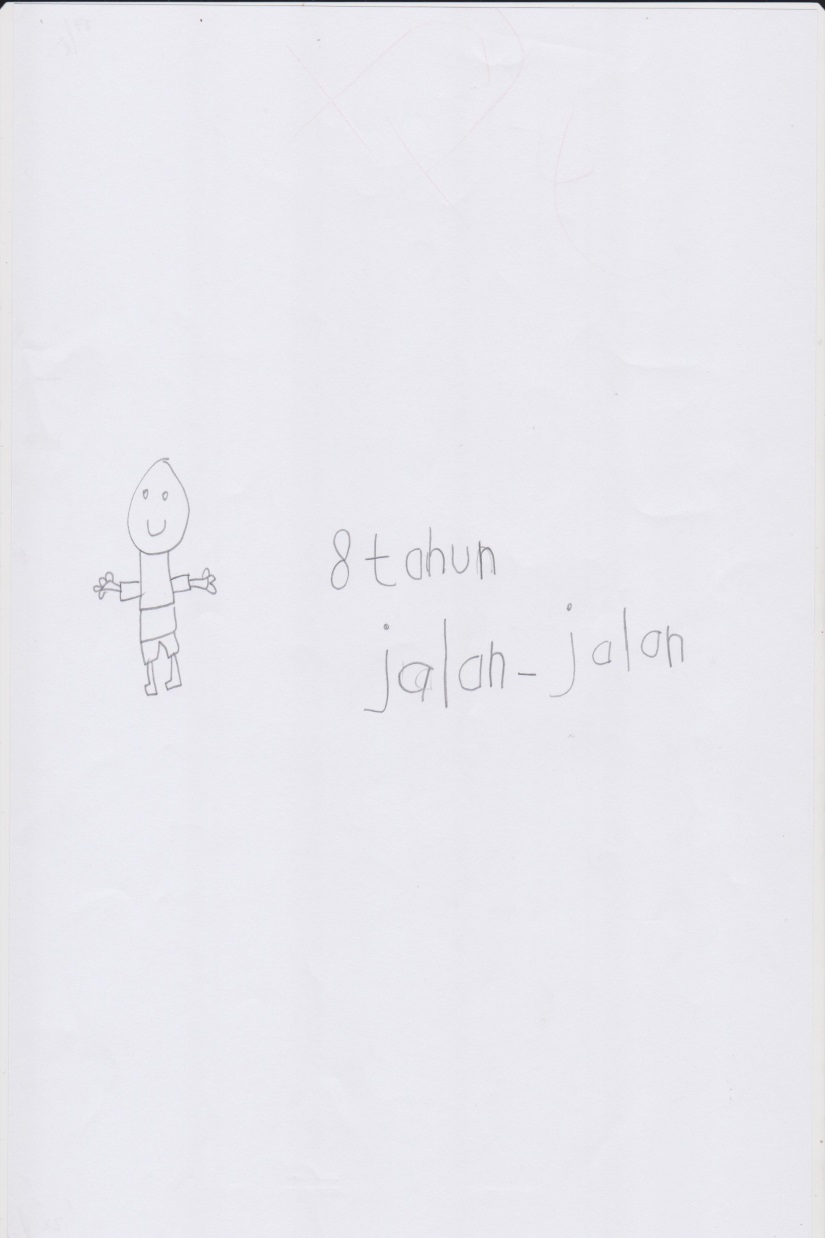 8 tahun
jalan-jalan